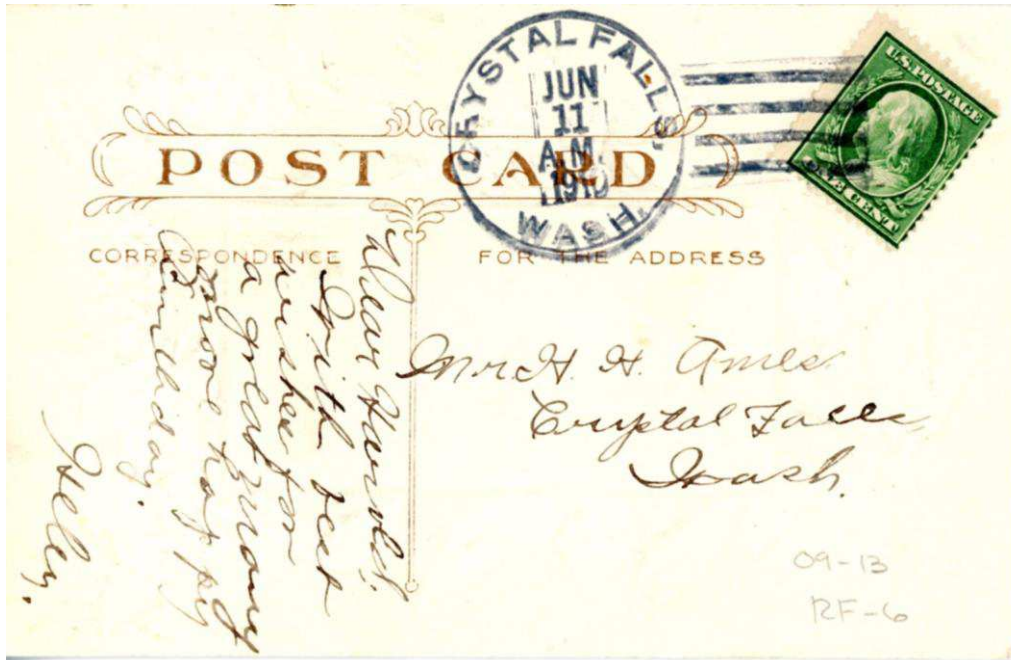 CRYSTAL FALLS,
JUN
11
A.M.
WASH.
U.S. POSTAGE
ONE CENT
POST CARD
CORRESPONDENCE
FOR THE ADDRESS
Dear Harold:
With best
wishes for
a great many
more happy
Birthday.
Helen.
Mr. H. H. Ames
Crystal Falls,
Wash.
09-13
RF-6